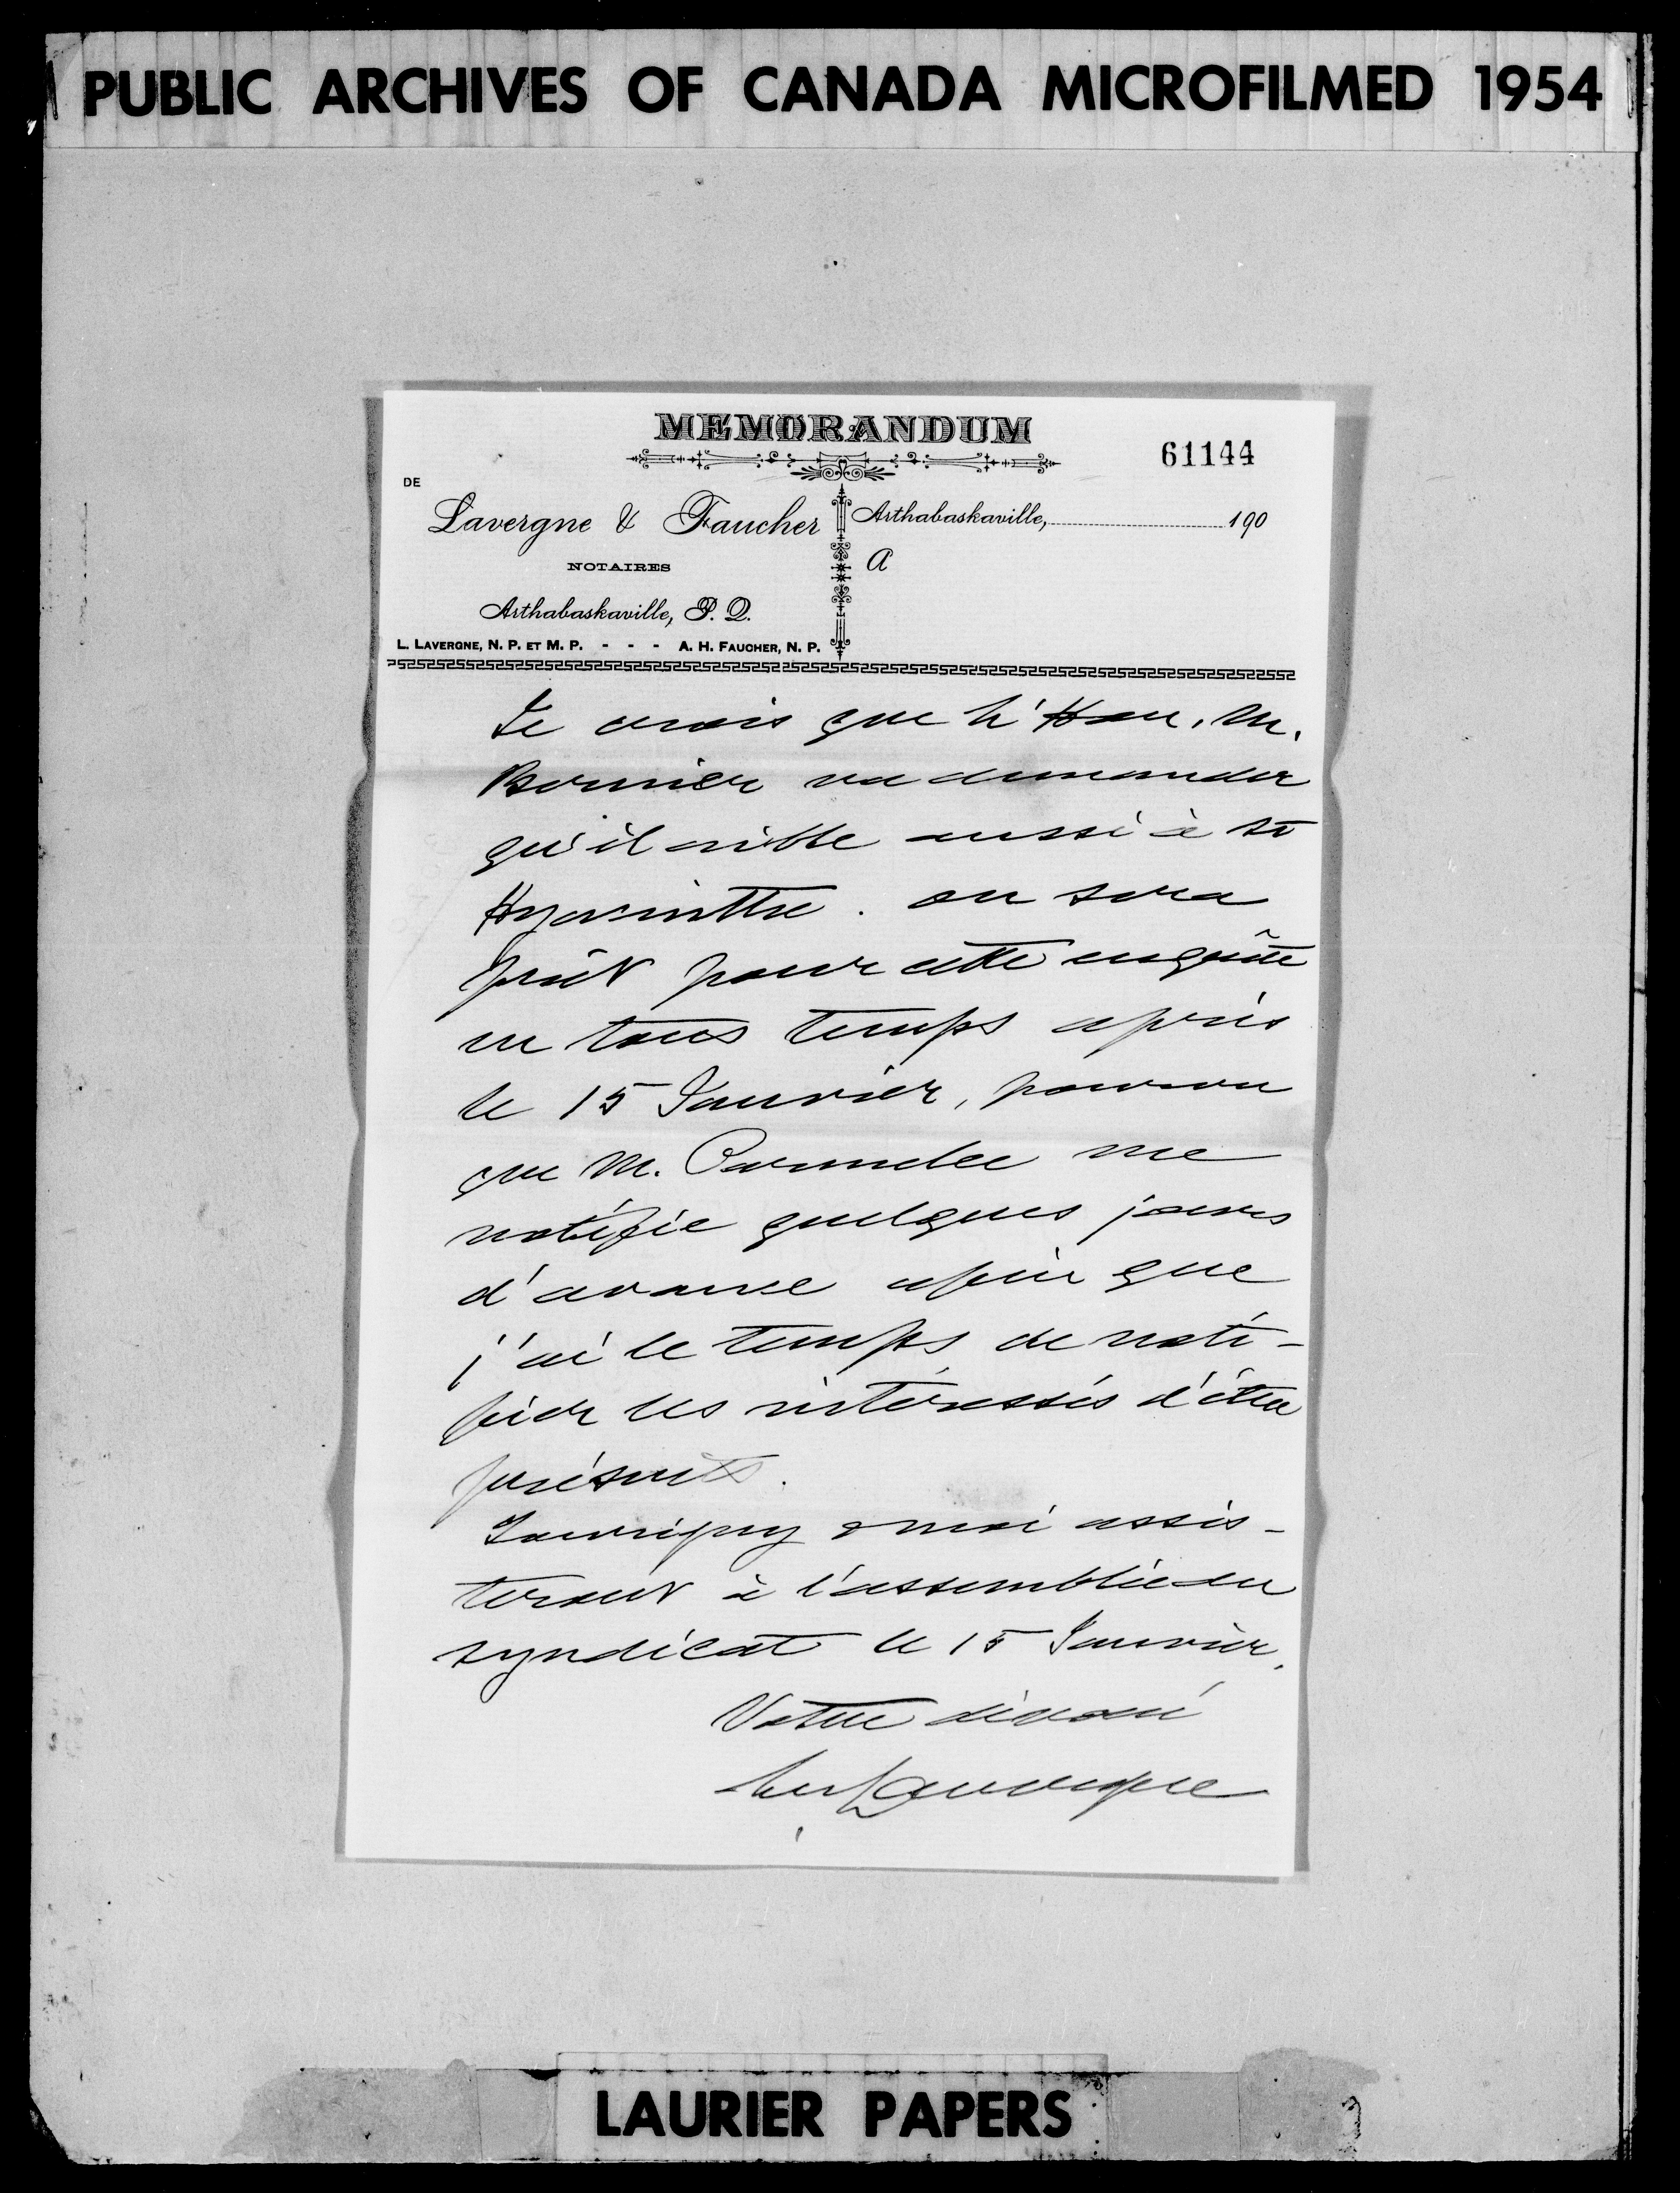 PUBLIC ARCHIVES OF CANADA MICROFILMED 1954
MEMORANDUM
61144
DE
Lavergne & Faucher
NOTAIRES
Arthabaskaville, P. Q.
L. LAVERGNE, N. P. ET M. P. - - - A. H. FAUCHER, N. P.
Arthabaskaville, 190
A
Je crois que l'Hon. M.
Bernier va demander
qu'il aille aussi à St
Hyacinthe. on sera
prêt pour cette enquête
en tous temps après
le 15 Janvier, pourvu
que M. Parmelee me
notifie quelques jours
d'avance afin que
j'ai le temps de noti-
fier les intéressés d'être
présents.
& moi assis-
teront à l'assemblée du
syndicat le 15 Janvier.
Votre dévoué
Ls Lavergne
LAURIER PAPERS